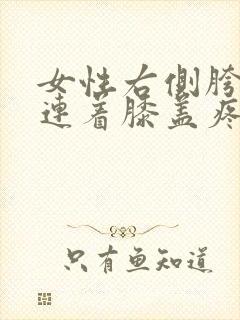 女性右侧胯
连着膝盖疼
只有鱼知道